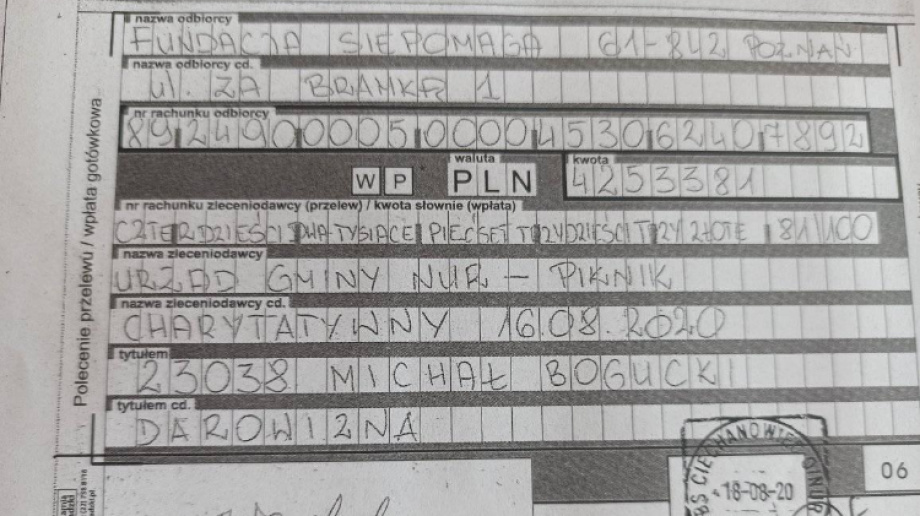 nazwa odbiorcy
FUNDACJA SIEPOMAGA 61-842 POZNAŃ
nazwa odbiorcy cd.
ul. ZA BRAMKĄ 1
nr rachunku odbiorcy
89249000050000453062407892
waluta
kwota
W P PLN 4253381
nr rachunku zleceniodawcy (przelew) / kwota słownie (wpłata)
CZTERDZIEŚCI DWA TYSIĄCE PIĘĆSET TRZYDZIEŚCI TRZY ZŁOTE 81/100
nazwa zleceniodawcy
URZĄD GMINY NUR - PIKNIK
nazwa zleceniodawcy cd.
CHARYTATYWNY 16.08.2020
tytułem
23038 MICHAŁ BOGUCKI
tytułem cd.
DAROWIZNA
Polecenie przelewu / wpłata gotówkowa
BS CIECHANOWIEC
18-08-20
06